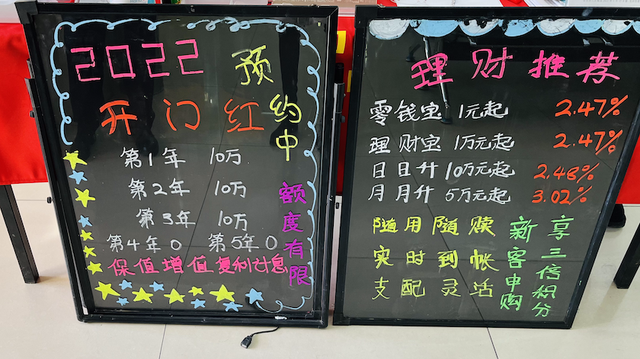 2022 预约中
开门红
第1年 10万
第2年 10万
第3年 10万
第4年 0 第5年 0
保值增值复利计息
额度有限
理财推荐
零钱宝 1元起 2.47%
理财宝 1万元起 2.47%
日日升 10万元起 2.48%
月月升 5万元起 3.02%
随用随赎
实时到帐
支配灵活
新客申购
享三倍积分